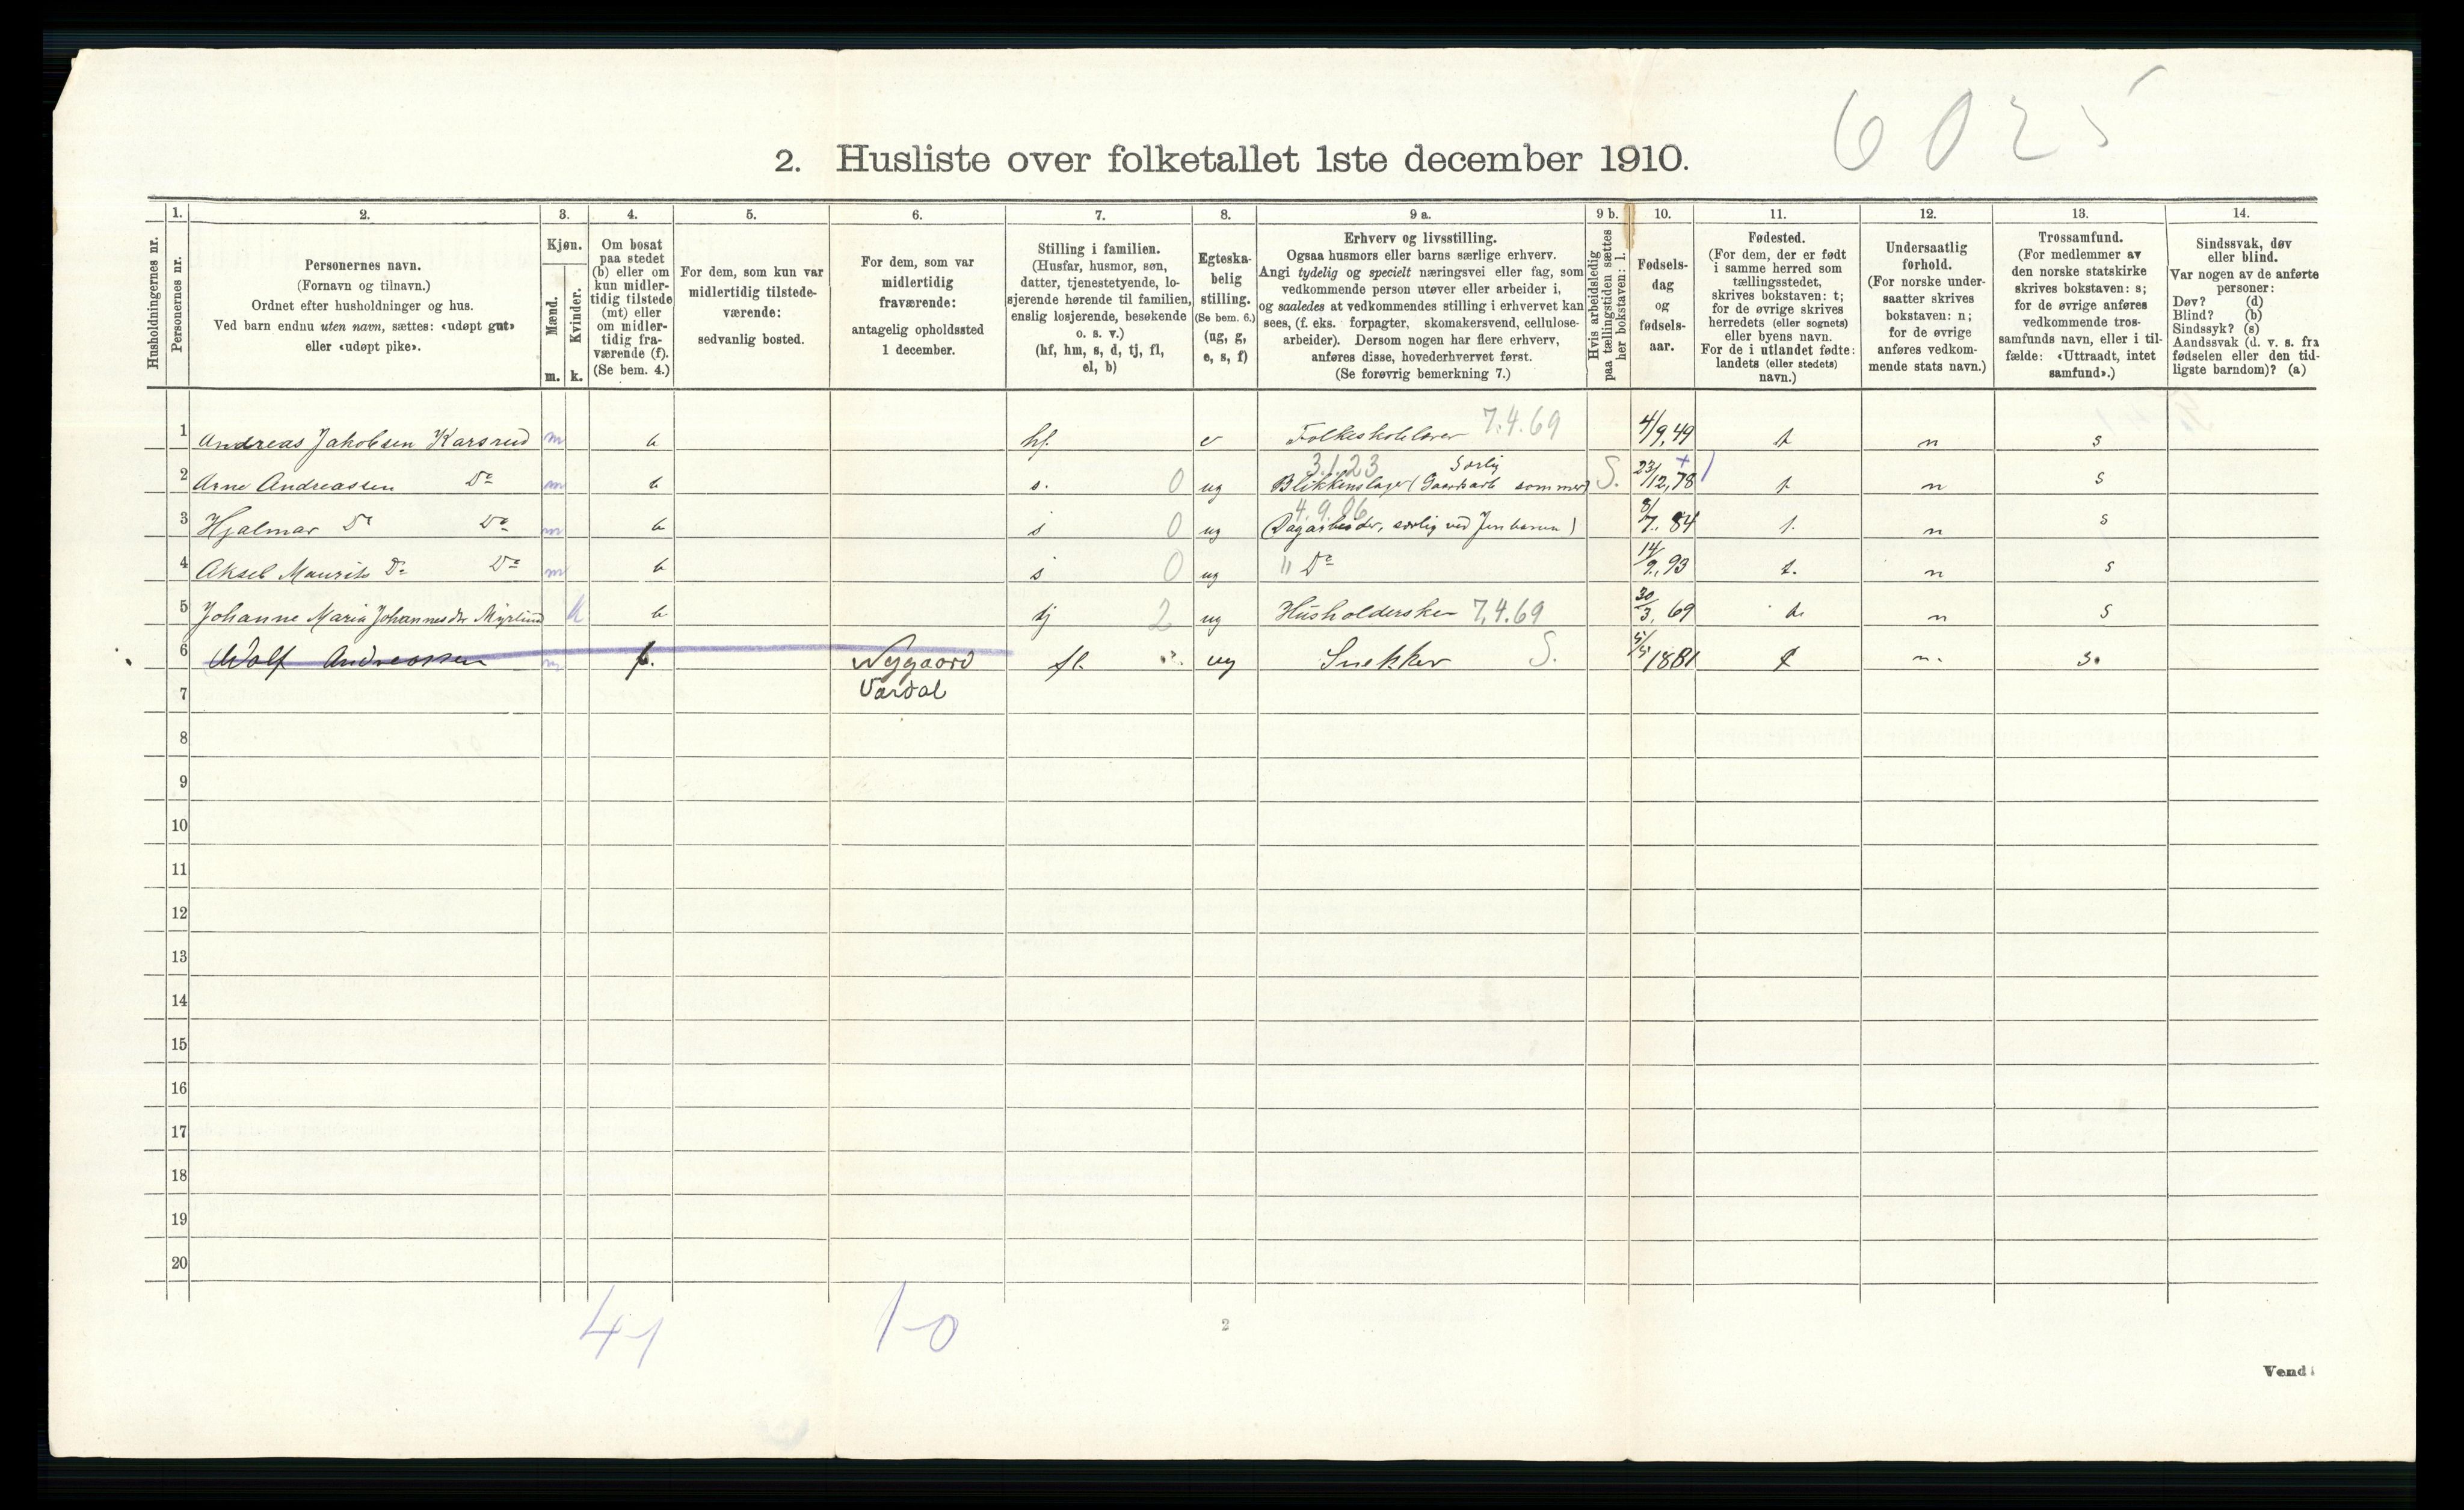 6025
2. Husliste over folketallet 1ste december 1910.
1. 2. 3. 4. 5. 6. 7. 8. 9 a. 9 b. 10. 11. 12. 13. 14.
Husholdningernes nr.
Personernes nr.
Personernes navn.
(Fornavn og tilnavn.)
Ordnet efter husholdninger og hus.
Ved barn endnu uten navn, sættes: «udøpt gut»
eller «udøpt pike».
Kjøn.
Mænd.
Kvinder.
m. k.
Om bosat
paa stedet
(b) eller om
kun midler-
tidig tilstede
(mt) eller
om midler-
tidig fra-
værende (f).
(Se bem. 4.)
For dem, som kun var
midlertidig tilstede-
værende:
sedvanlig bosted.
For dem, som var
midlertidig
fraværende:
antagelig opholdssted
1 december.
Stilling i familien.
(Husfar, husmor, søn,
datter, tjenestetyende, lo-
sjerende hørende til familien,
enslig losjerende, besøkende
o. s. v.)
(hf, hm, s, d, tj, fl,
el, b)
Egteska-
belig
stilling.
(Se bem. 6.)
(ug, g,
e, s, f)
Erhverv og livsstilling.
Ogsaa husmors eller barns særlige erhverv.
Angi tydelig og specielt næringsvei eller fag, som
vedkommende person utøver eller arbeider i,
og saaledes at vedkommendes stilling i erhvervet kan
sees, (f. eks. forpagter, skomakersvend, cellulose-
arbeider). Dersom nogen har flere erhverv,
anføres disse, hovederhvervet først.
(Se forøvrig bemerkning 7.)
Hvis arbeidsledig
paa tællingstiden sættes
her bokstaven: l.
Fødsels-
dag
og
fødsels-
aar.
Fødested.
(For dem, der er født
i samme herred som
tællingsstedet,
skrives bokstaven: t;
for de øvrige skrives
herredets (eller sognets)
eller byens navn.
For de i utlandet fødte:
landets (eller stedets)
navn.)
Undersaatlig
forhold.
(For norske under-
saatter skrives
bokstaven: n;
for de øvrige
anføres vedkom-
mende stats navn.)
Trossamfund.
(For medlemmer av
den norske statskirke
skrives bokstaven: s;
for de øvrige anføres
vedkommende tros-
samfunds navn, eller i til-
fælde: «Uttraadt, intet
samfund».)
Sindssvak, døv
eller blind.
Var nogen av de anførte
personer:
Døv? (d)
Blind? (b)
Sindssyk? (s)
Aandssvak (d. v. s. fra
fødselen eller den tid-
ligste barndom)? (a)
1 Andreas Jakobsen Karsrud m b hf. e Folkeskolelærer 7.4.69 4/9, 49 t n s
2 Arne Andreassen Do m b s. 0 ug 3.1.23 Blikkenslager (Gaardsarb særlig sommer) S. 23/12, 78 t n s
3 Hjalmar Do Do m b s 0 ug 4.9.06 (Dagarbeider, særlig ved Jernbanen) 8/7. 84 t. n s
4 Aksel Maurits Do Do m b s 0 ug " Do 14/9, 93 t. n s
5 Johanne Maria Johannesdtr Myrlund k b tj 2 ug Husholderske 7.4.69 30/3, 69 n s
6 Andreassen m f. Nygaard fl. ug Snekker S. 5/5 1881 t n. s.
7 Vardal
8
9
10
11
12
13
14
15
16
17
18
19
20
4-1 1-0
2
Vend!